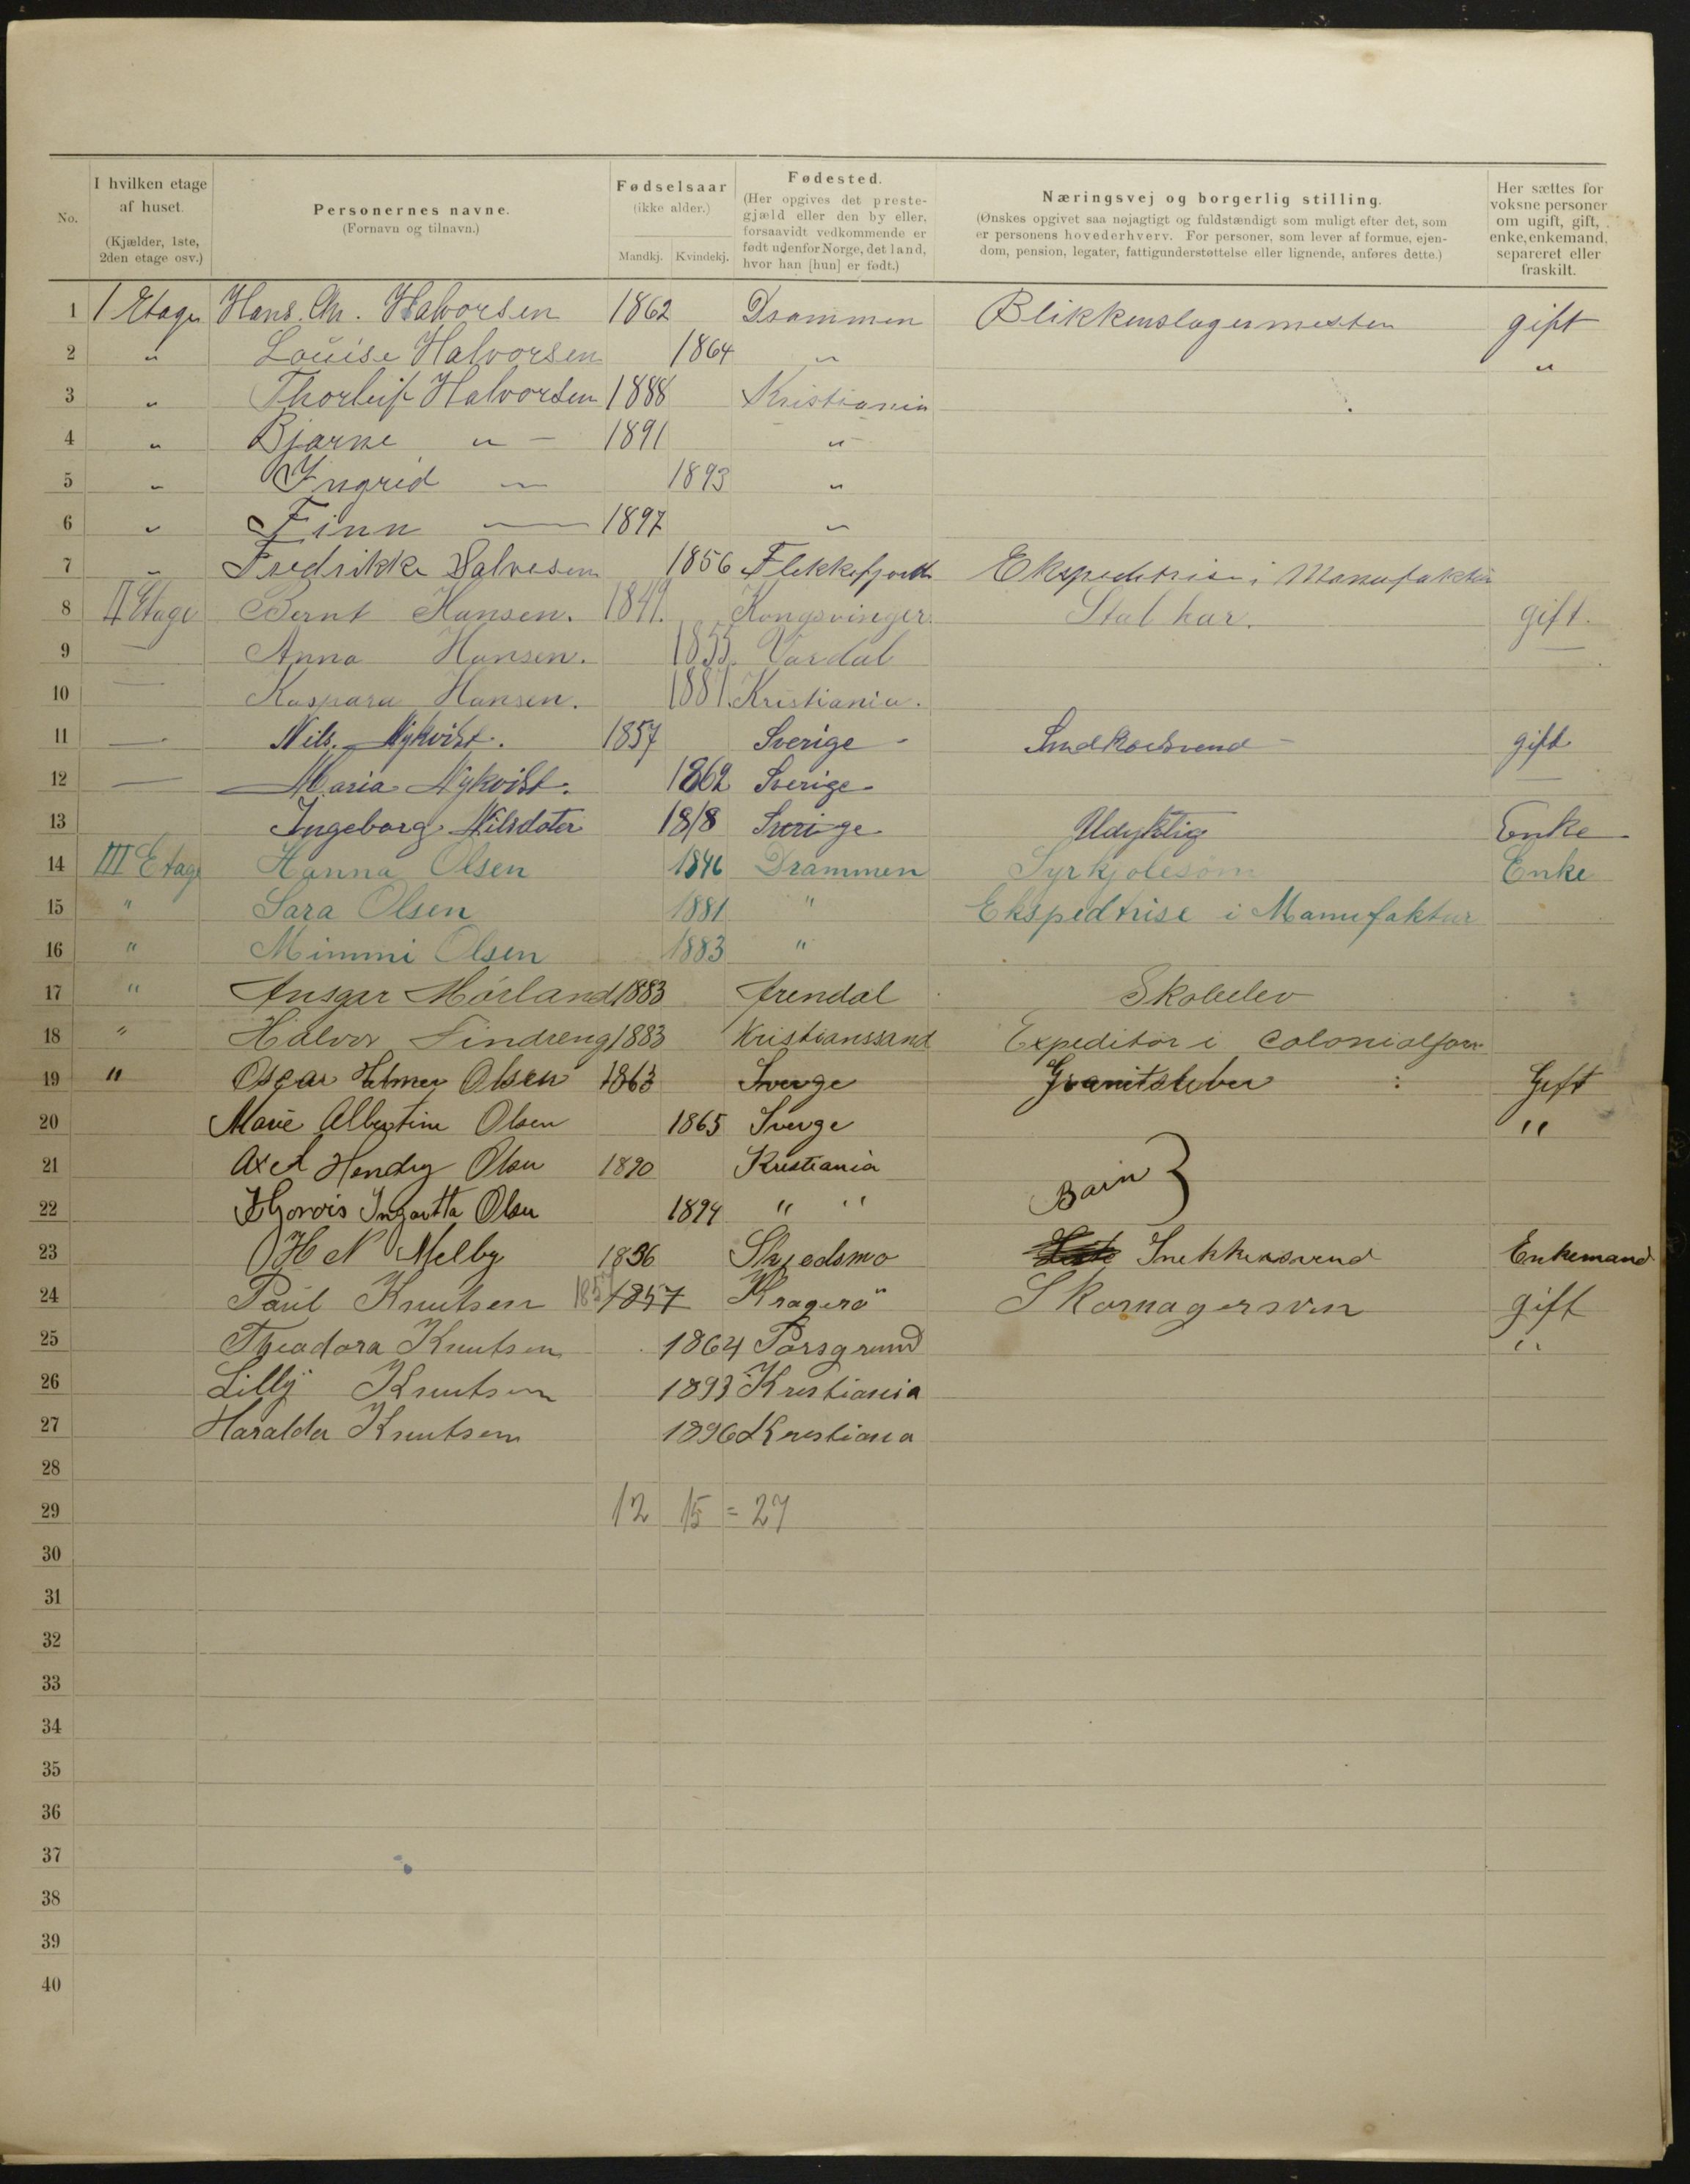 No.
I hvilken etage af huset. (Kjælder, 1ste, 2den etage osv.)
Personernes navne. (Fornavn og tilnavn.)
Fødselsaar (ikke alder.) Mandkj. Kvindekj.
Fødested. (Her opgives det prestegjæld eller den by eller, forsaavidt vedkommende er født udenfor Norge, det land, hvor han [hun] er født.)
Næringsvej og borgerlig stilling. (Ønskes opgivet saa nøjagtigt og fuldstændigt som muligt efter det, som er personens hovederhverv. For personer, som lever af formue, ejendom, pension, legater, fattigunderstøttelse eller lignende, anføres dette.)
Her sættes for voksne personer om ugift, gift, enke, enkemand, separeret eller fraskilt.
1 1 Etage Hans. Chr. Halvorsen 1862 Drammen Blikkenslagermester gift
2 " Louise Halvorsen 1864 " "
3 " Thorleif Halvorsen 1888 Kristiania
4 " Bjarne " - 1891 "
5 " Ingrid — 1893 "
6 " Finn — 1897 "
7 " Fredrikke Salvesen 1856 Flekkefjord Ekspeditrise i Manufaktur
8 II Etage Bernt Hansen. 1849. Kongsvinger. Stalkar. gift.
9 — Anna Hansen. 1855. Vardal —
10 — Kaspara Hansen. 1881. Kristiania.
11 — Nils. Nykvist. 1857 Sverige gift
12 — Maria Nykvist. 1862 Sverige —
13 Ingeborg Nilsdater 1818 Sverige Udyktig Enke
14 III Etage Hanna Olsen 1846 Drammen Syr kjolesøm Enke
15 " Sara Olsen 1881 " Ekspedtrise i Manufaktur
16 " Mimmi Olsen 1883 "
17 " Ansgar Mørland 1883 Arendal Skoleelev
18 " Halvor Lindreng 1883 Kristianssand Expeditør i Colonialforr
19 " Oscar Helmer Olsen 1863 Sverge Granitsleber : Gift
20 Marie Albertine Olsen 1865 Sverge "
21 Axel Hendry Olsen 1890 Kristiania
Barn }
22 Ingartta Olsen 1894 " "
23 H N Melby 1836 Skjedsmo Snekkersvend Enkemand
24 Paul Knutsen 1857 Kragerø Skomagersven gift
25 Theodora Knutsen 1864 Porsgrund "
26 Lilly Knutsen 1893 Kristiania
27 Haralda Knutsen 1896 Kristiania
28
29 12 15 = 27
30
31
32
33
34
35
36
37
38
39
40